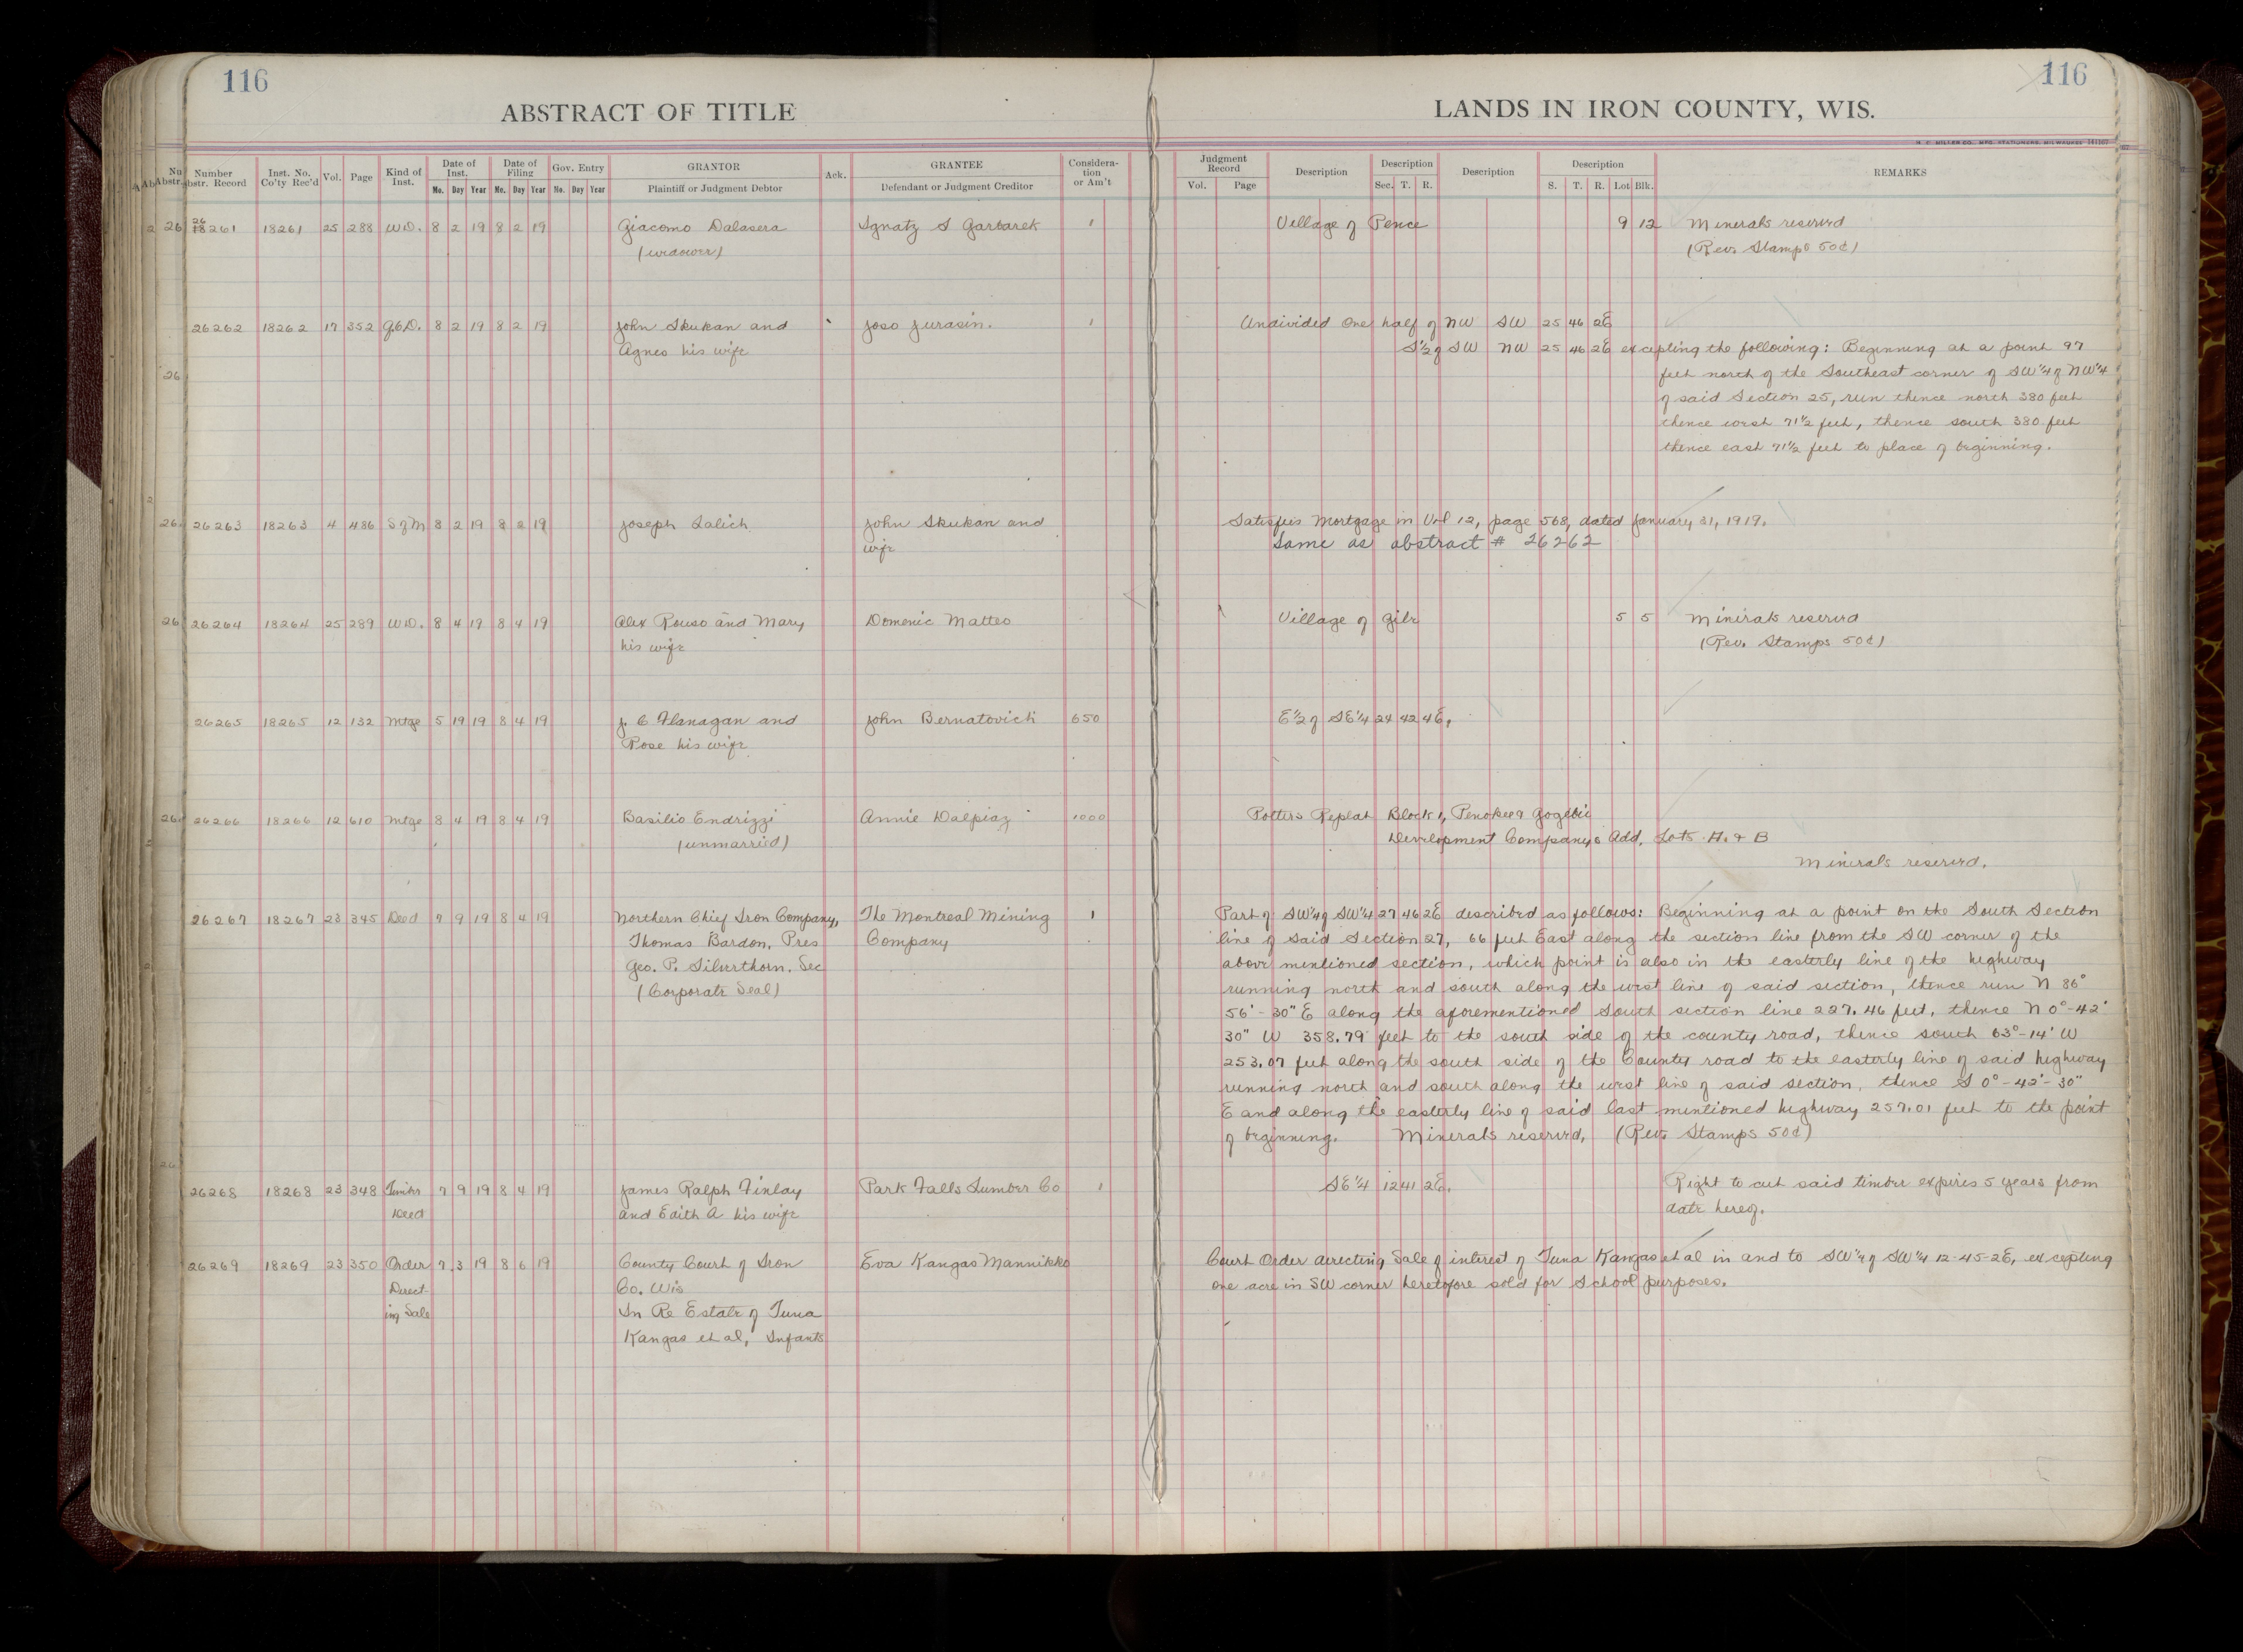 116
116
ABSTRACT OF TITLE
LANDS IN IRON COUNTY, WIS.
Number Abstr. Record
Inst. No. Co'ty Rec'd
Vol.
Page
Kind of Inst.
Date of Inst.
Mo. Day Year
Date of Filing
Mo. Day Year
Gov. Entry
No. Day Year
GRANTOR
Plaintiff or Judgment Debtor
Ack.
GRANTEE
Defendant or Judgment Creditor
Considera-tion or Am't
Judgment Record
Vol. Page
Description
Description
Sec. T. R.
Description
Description
S. T. R. Lot Blk.
REMARKS
26261 18261 25 288 W.D. 8 2 19 8 2 19 Giacomo Dalasera Ignatz S Garbarek 1 Village of Pence 9 12 Minerals reserved
(widower) (Rev. Stamps 50¢)
26262 18262 17 352 Q.C.D. 8 2 19 8 2 19 John Skukan and Joso Jurasin. 1 Undivided One half of NW SW 25 46 2E
Agnes his wife S½ of SW NW 25 46 2E excepting the following: Beginning at a point 97
feet north of the Southeast corner of SW¼ of NW¼
of said Section 25, run thence north 380 feet
thence west 71½ feet, thence south 380 feet
thence east 71½ feet to place of beginning.
26263 18263 4 486 S of M 8 2 19 8 2 19 Joseph Salich John Skukan and Satisfies Mortgage in Vol 12, page 568, dated January 31, 1919.
wife Same as abstract # 26262
26264 18264 25 289 W.D. 8 4 19 8 4 19 Alex Rouso and Mary Domenic Matteo Village of Gile 5 5 Minerals reserved
his wife (Rev. Stamps 50¢)
26265 18265 12 132 Mtge 5 19 19 8 4 19 J. C Flanagan and John Bernatovich 650 E½ of SE¼ 24 42 4E.
Rose his wife
26266 18266 12 610 Mtge 8 4 19 8 4 19 Basilio Endrizzi Annie Dalpiaz 1000 Potters Replat Block 1, Penokee & Gogebic
(unmarried) Development Companys Add, Lots A. & B
Minerals reserved.
26267 18267 23 345 Deed 7 9 19 8 4 19 Northern Chief Iron Company, The Montreal Mining 1 Part of SW¼ of SW¼ 27 46 2E described as follows: Beginning at a point on the South Section
Thomas Bardon, Pres Company line of said Section 27, 66 feet East along the section line from the SW corner of the
Geo. P. Silverthorn. Sec above mentioned section, which point is also in the easterly line of the highway
(Corporate Seal) running north and south along the west line of said section, thence run N 86°
56'-30" E along the aforementioned South section line 227.46 feet, thence N 0°-42'
30" W 358.79 feet to the south side of the county road, thence south 63°-14' W
253.07 feet along the south side of the County road to the easterly line of said highway
running north and south along the west line of said section, thence S 0°-42'-30"
E and along the easterly line of said last mentioned highway 257.01 feet to the point
of beginning. Minerals reserved, (Rev. Stamps 50¢)
26268 18268 23 348 Timber 7 9 19 8 4 19 James Ralph Finlay Park Falls Lumber Co 1 SE¼ 12 41 2E. Right to cut said timber expires 5 years from
Deed and Edith A his wife date hereof.
26269 18269 23 350 Order 7 3 19 8 6 19 County Court of Iron Eva Kangas Mannikko Court Order directing Sale of interest of Tuna Kangas et al in and to SW¼ of SW¼ 12-45-2E, excepting
Direct- Co. Wis one acre in SW corner heretofore sold for School purposes.
ing Sale In Re Estate of Tuna
Kangas et al, Infants